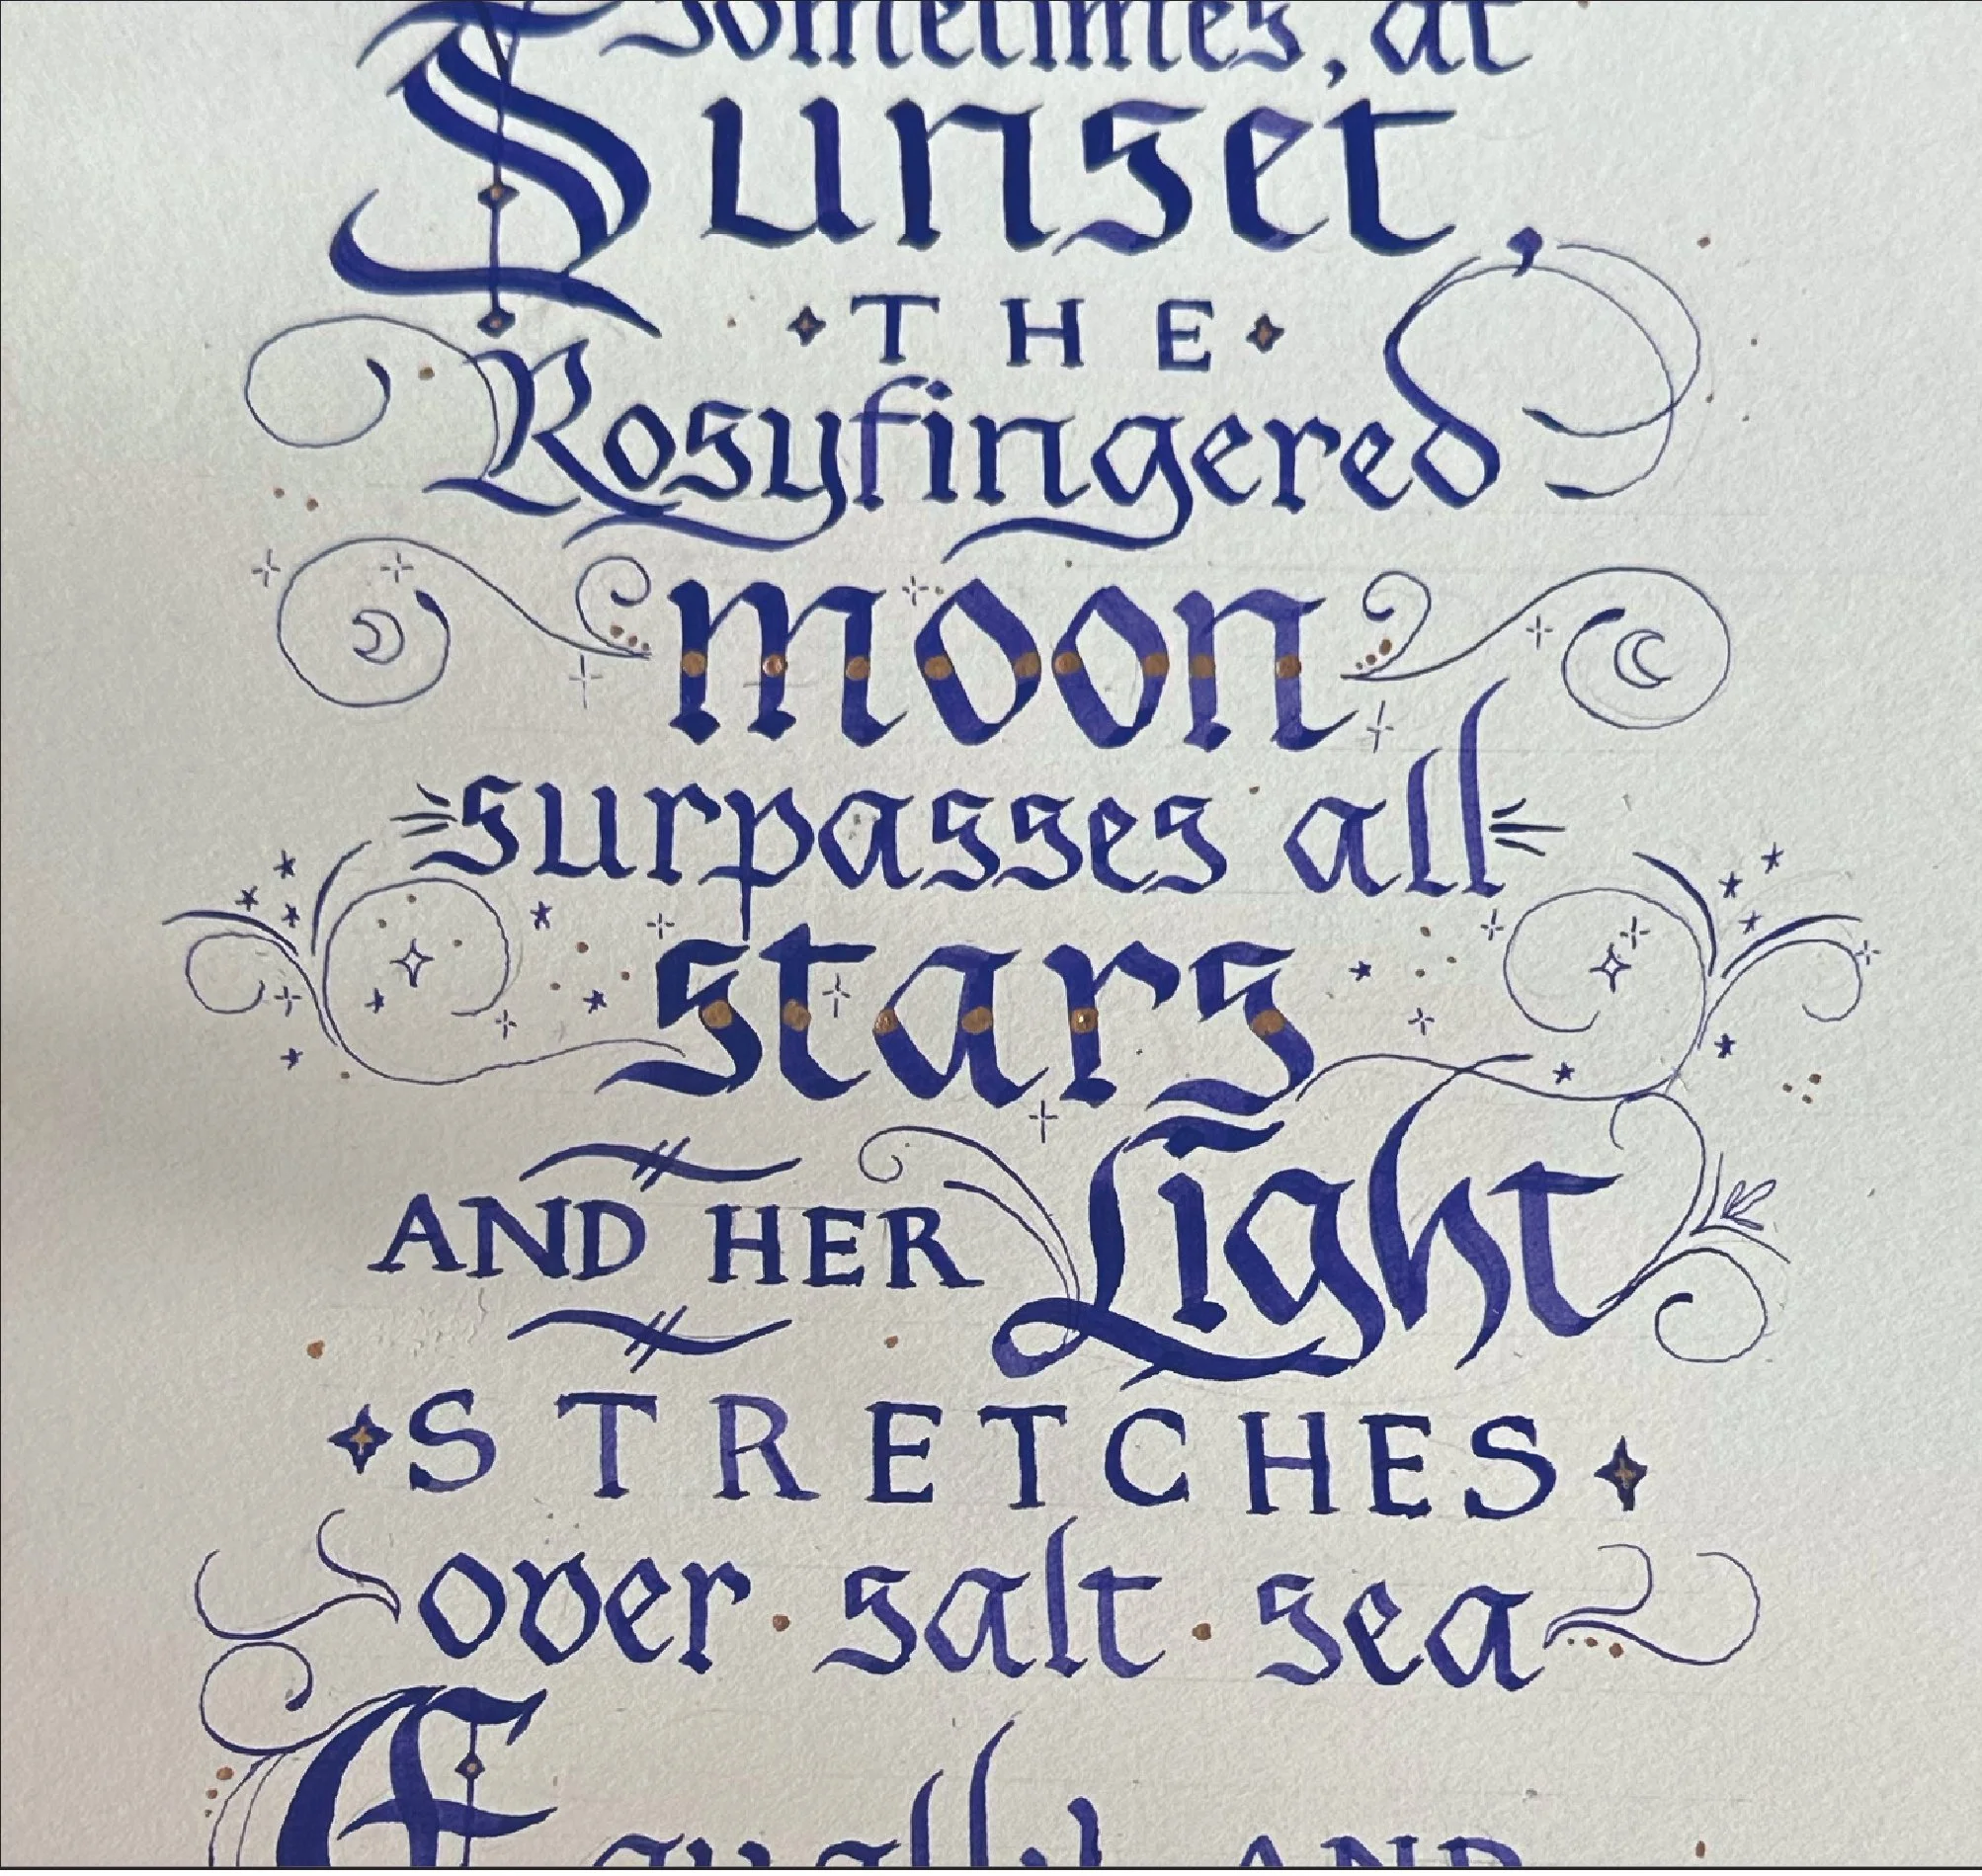 Sometimes, at
Sunset,
THE
Rosyfingered
moon
surpasses all
stars
AND HER Light
STRETCHES
over salt sea
Equally AND